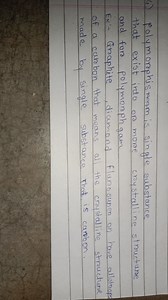 Polymorphism is single substance
that exist into on more crystalline structure
and for polymorphism
Ex - Graphite, diamond
of a carbon that means all the crystalline structure
made by single substance that is carbon